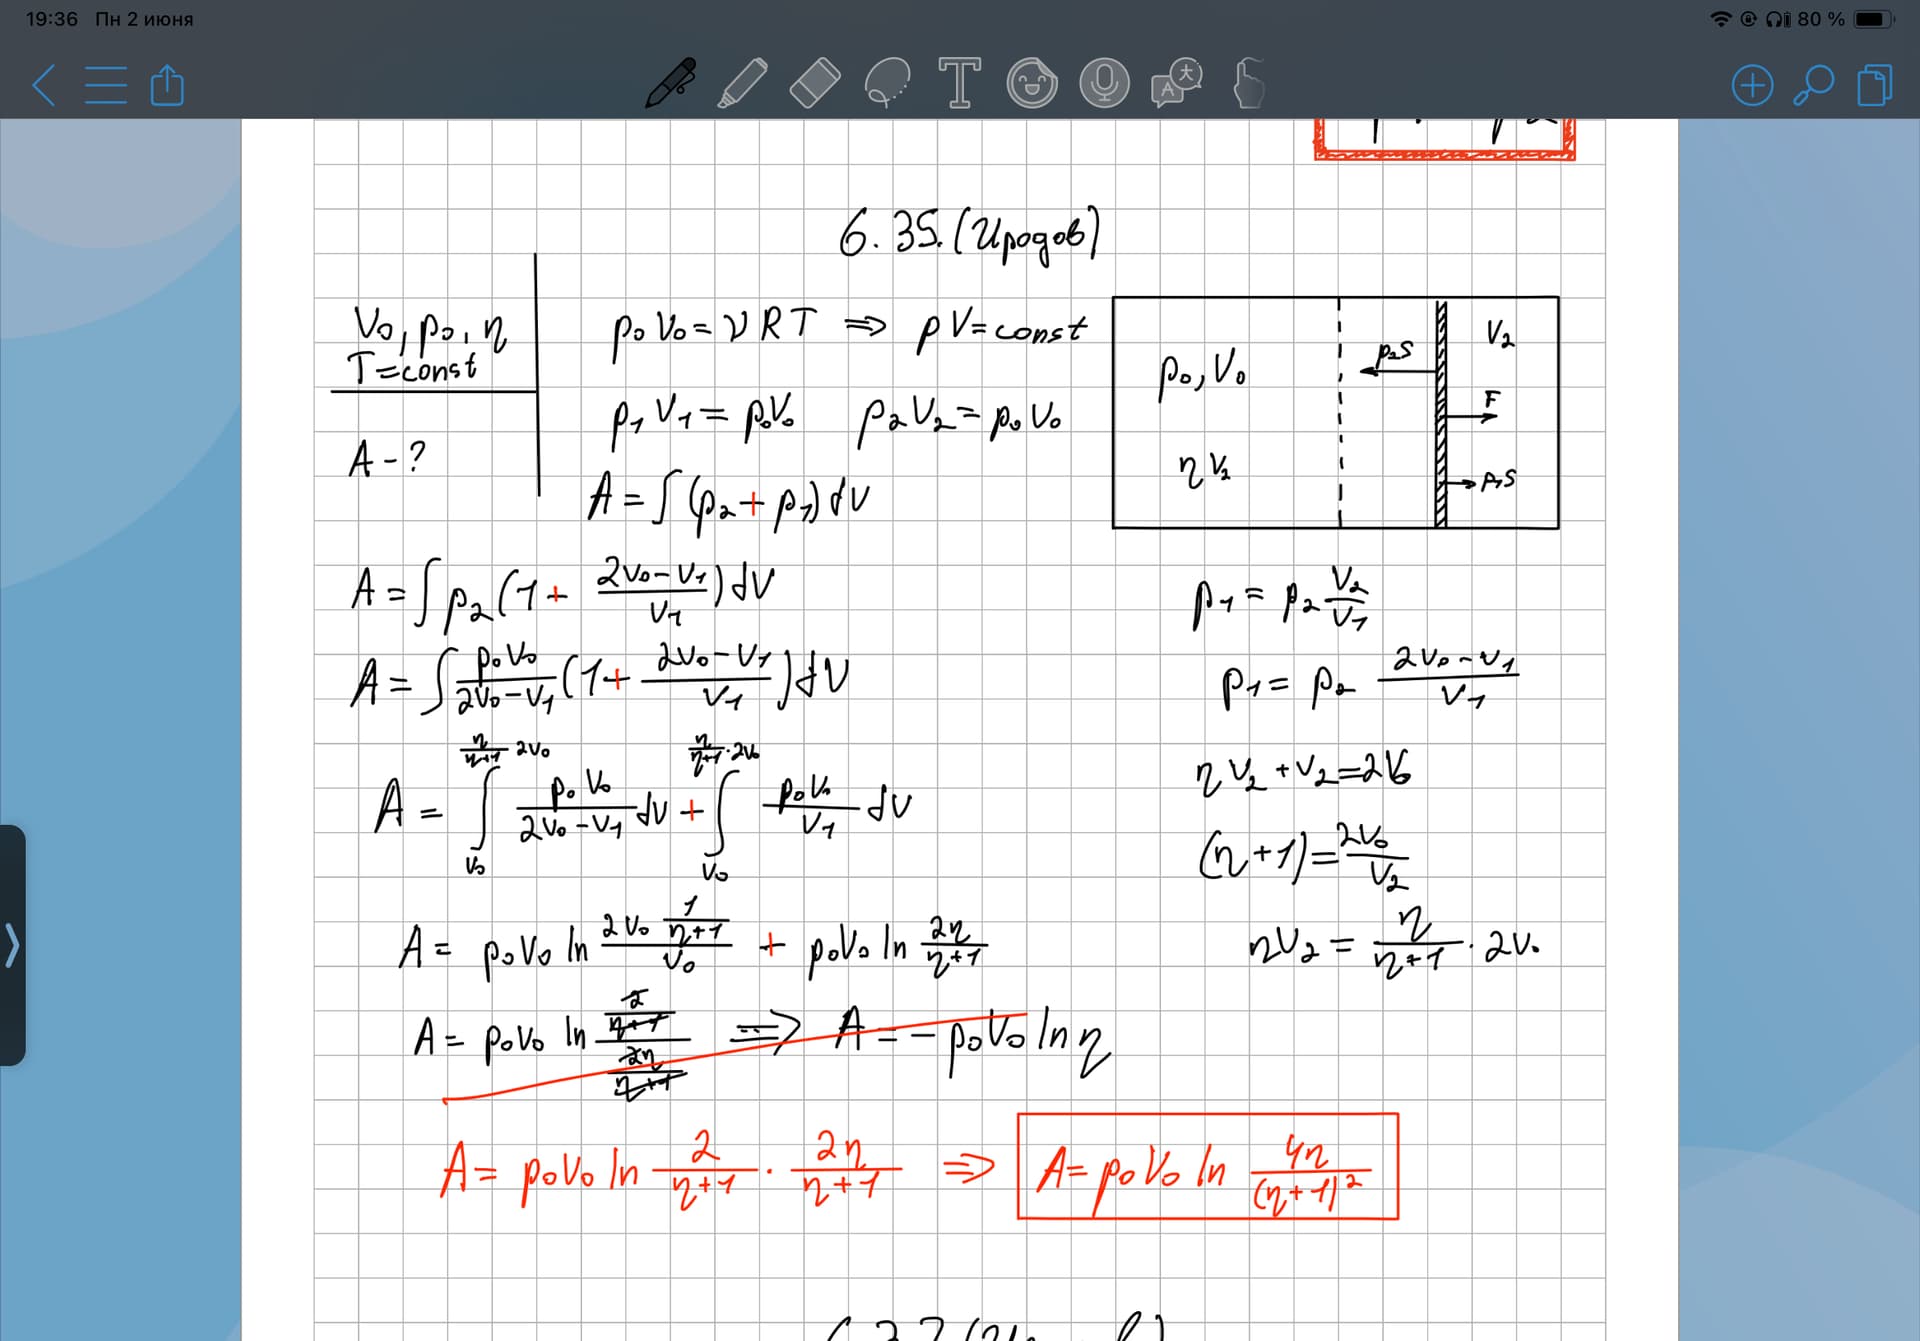 19:36 Пн 2 июня
80 %
6.35. (Иродов)
V₀, p₀, η
T = const
A - ?
p₀V₀ = νRT ⇒ pV = const
p₁V₁ = p₀V₀ p₂V₂ = p₀V₀
A = ∫(p₂ + p₁)dV
p₀, V₀
ηV₂
p₂S
V₂
F
p₁S
A = ∫p₂(1 + (2V₀ - V₁)/V₁)dV
A = ∫ p₀V₀/(2V₀ - V₁) (1 + (2V₀ - V₁)/V₁)dV
A = ∫_{V₀}^{η/(η+1) 2V₀} p₀V₀/(2V₀ - V₁) dV + ∫_{V₀}^{η/(η+1) · 2V₀} p₀V₀/V₁ dV
A = p₀V₀ ln (2V₀ 1/(η+1))/V₀ + p₀V₀ ln 2η/(η+1)
A = p₀V₀ ln (2/(η+1))/(2η/(η+1)) ⇒ A = - p₀V₀ ln η
A = p₀V₀ ln 2/(η+1) · 2η/(η+1) ⇒ A = p₀V₀ ln 4η/(η+1)²
p₁ = p₂ V₂/V₁
p₁ = p₂ (2V₀ - V₁)/V₁
ηV₂ + V₂ = 2V₀
(η+1) = 2V₀/V₂
ηV₂ = η/(η+1) · 2V₀